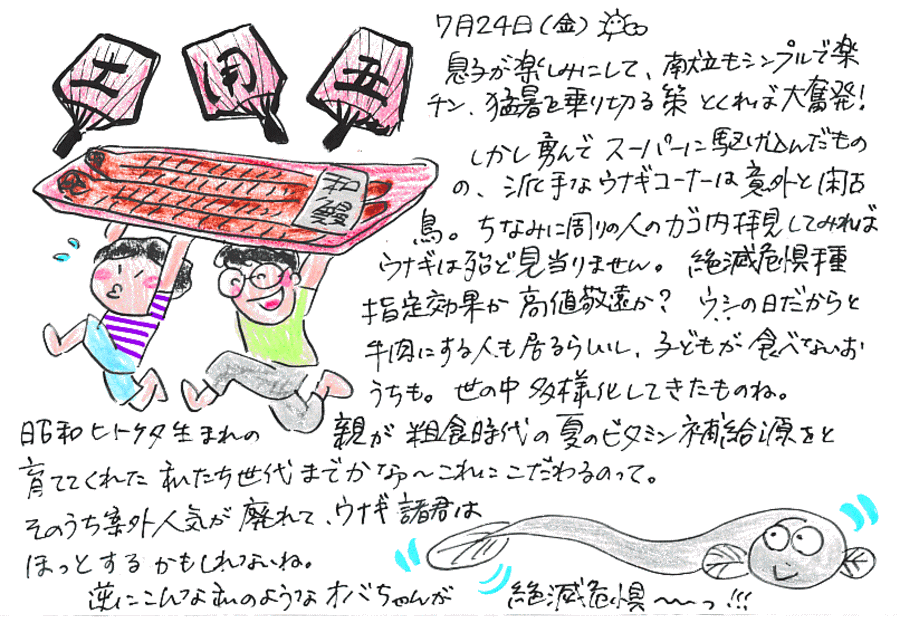 土 用 丑
和鰻
7月24日(金)
息子が楽しみにして、献立もシンプルで楽
チン、猛暑を乗り切る策とくれば大奮発!
しかし勇んでスーパーに駆け込んだもの
の、派手なウナギコーナーは意外と閑古
鳥。ちなみに周りの人のカゴ内拝見してみれば
ウナギは殆ど見当りません。絶滅危惧種
指定効果か高値敬遠か? ウシの日だからと
牛肉にする人も居るらしいし、子どもが食べないお
うちも。世の中多様化してきたものね。
昭和ヒトケタ生まれの 親が粗食時代の夏のビタミン補給源をと
育ててくれた私たち世代までかなァ〜これにこだわるのって。
そのうち案外人気が廃れて、ウナギ諸君は
ほっとするかもしれないね。
逆にこんな私のようなオバちゃんが 絶滅危惧〜〜っ!!!